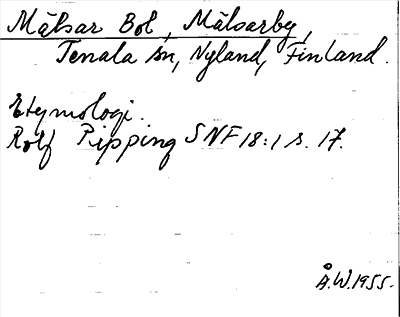 Målsar Bol, Målsarby,
Tenala sn, Nyland, Finland.
Etymologi.
Rolf Pipping SNF 18:1 s. 17.
Å.W.1955.